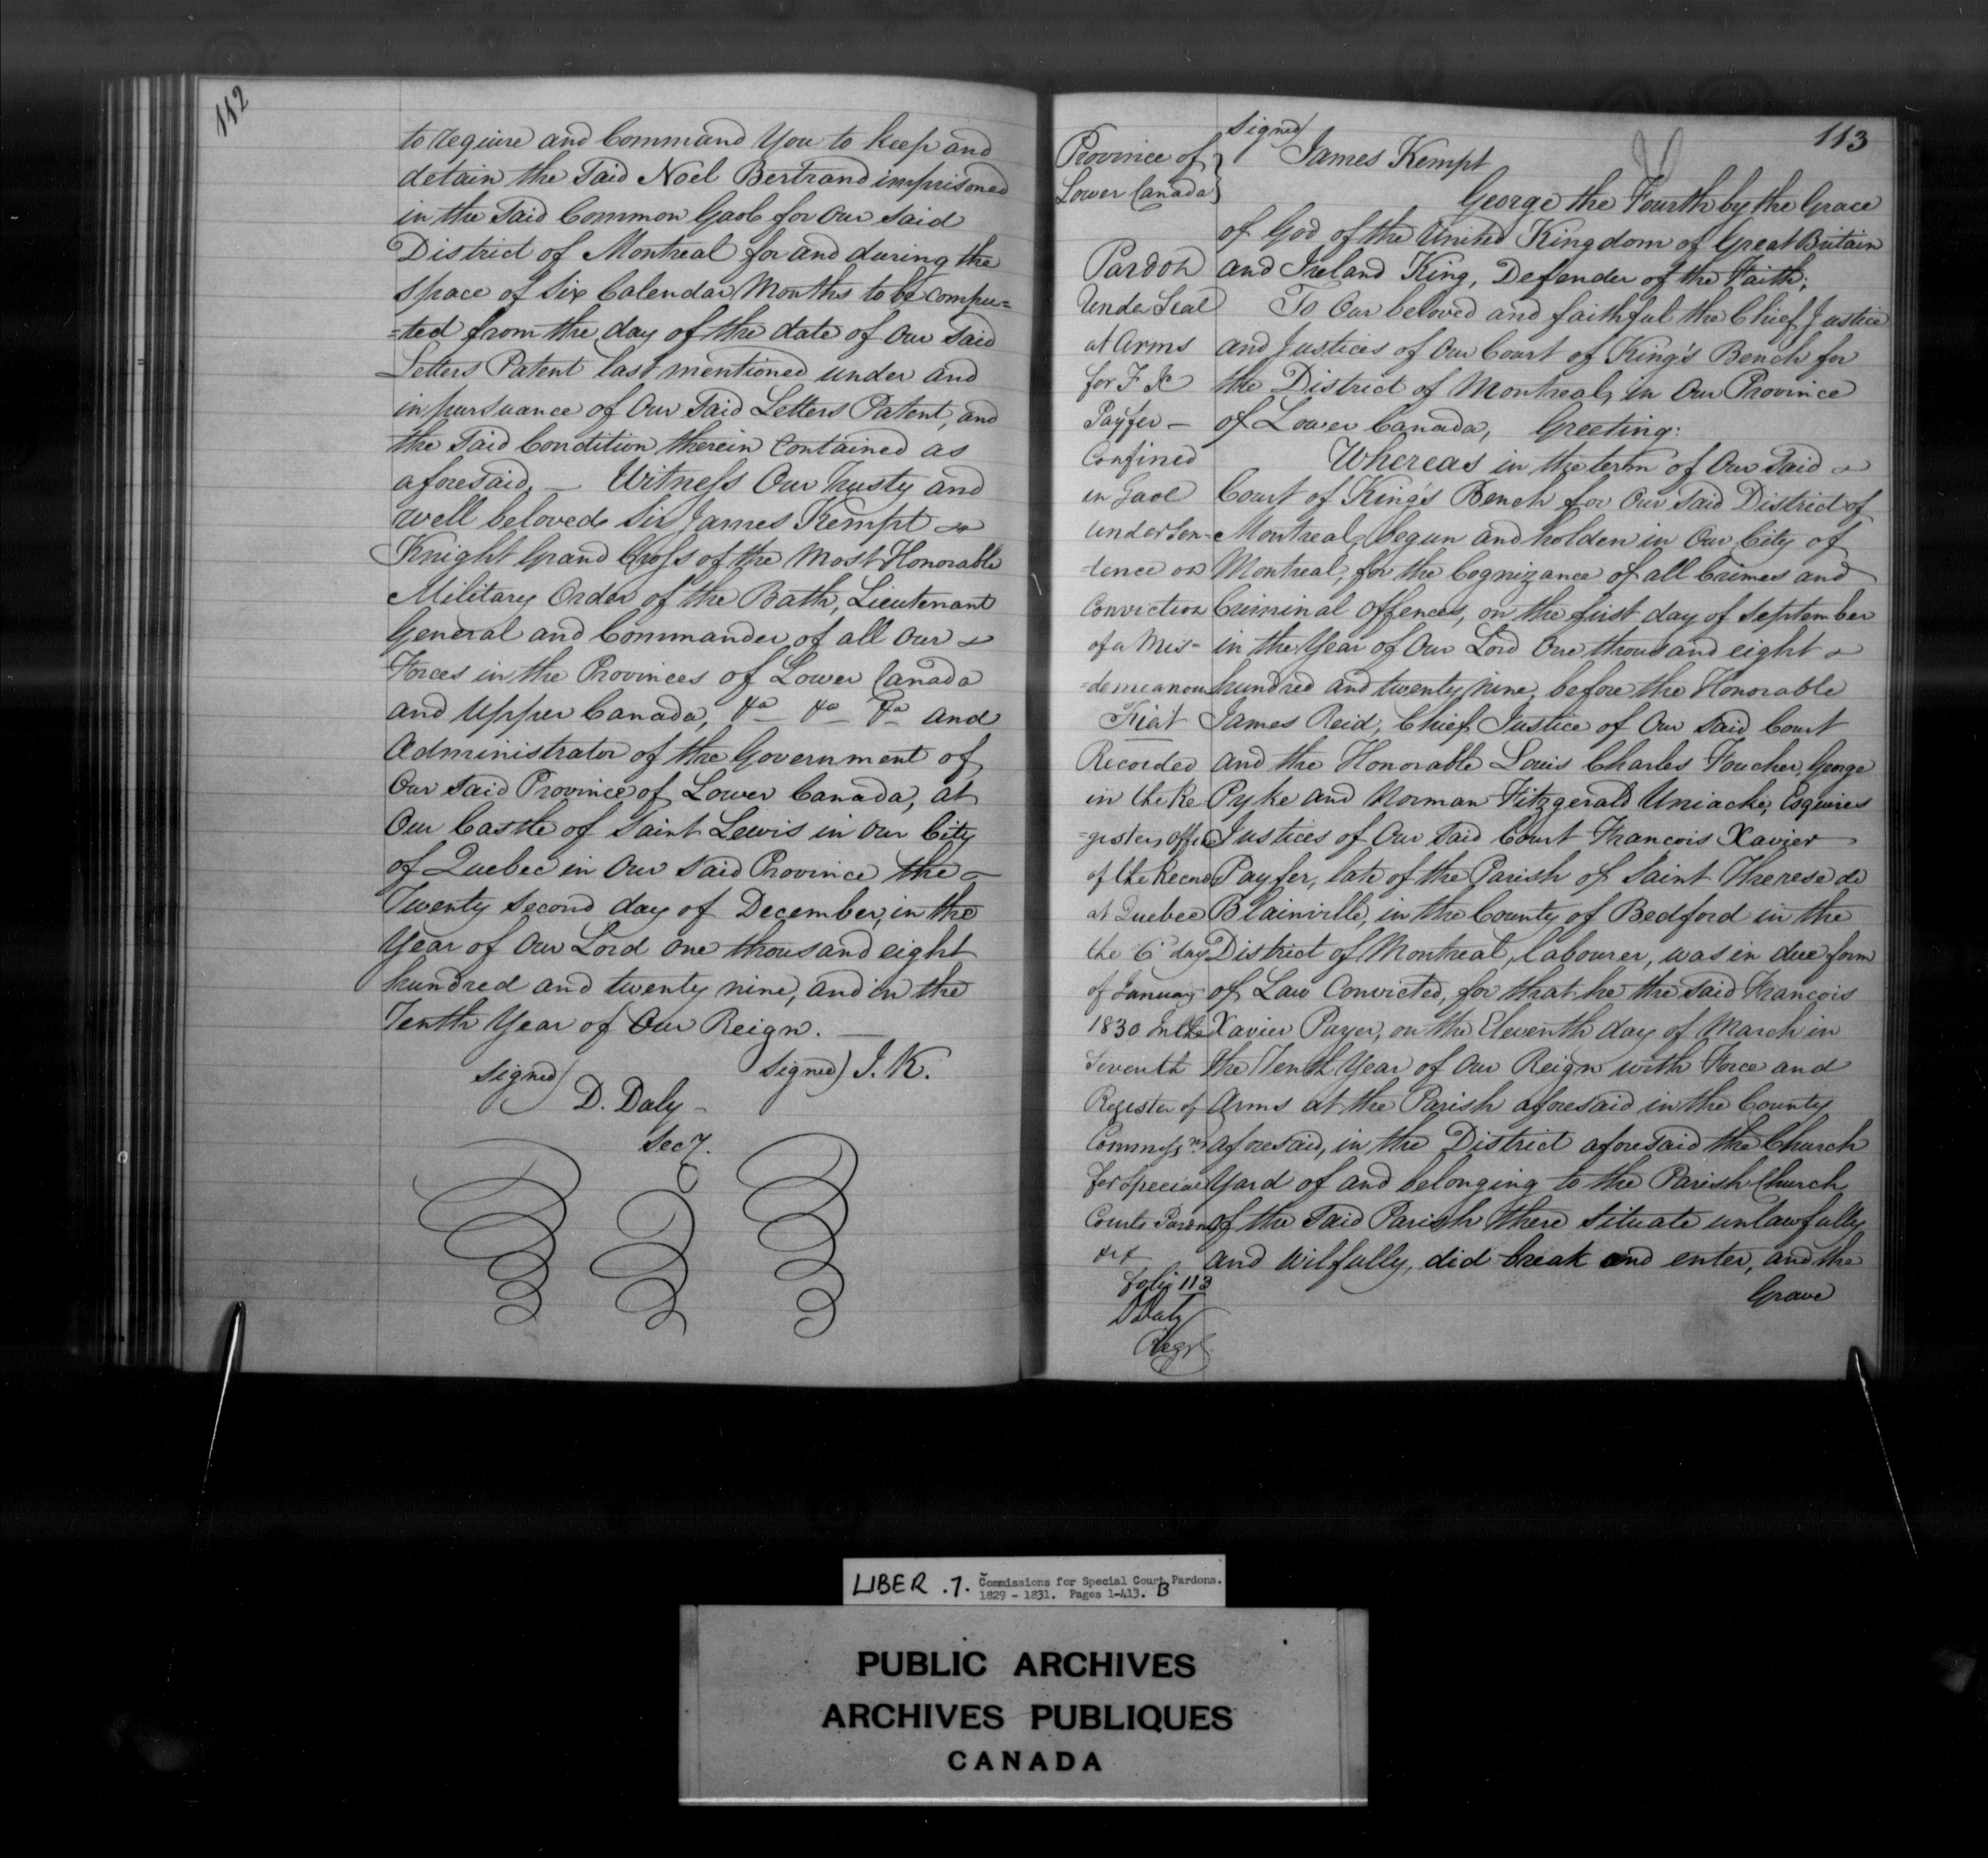 112
to require and Command You to keep and
detain the said Noel Bertrand imprisoned
in the said Common Gaol for Our said
District of Montreal for and during the
space of six Calendar Months to be compu=
=ted from the day of the date of Our said
Letters Patent last mentioned under and
in pursuance of Our said Letters Patent, and
the said Condition therein Contained as
aforesaid, — Witness Our trusty and
well beloved Sir James Kempt
Knight Grand Cross of the Most Honorable
Military Order of the Bath, Lieutenant
General and Commander of all Our
Forces in the Provinces of Lower Canada
and Upper Canada, &a &a &a and
Administrator of the Government of
Our said Province of Lower Canada, at
Our Castle of Saint Lewis in Our City
of Quebec in Our said Province the
Twenty second day of December, in the
Year of Our Lord one thousand eight
hundred and twenty nine, and in the
Tenth Year of Our Reign. —
signed) D. Daly —
Secy.
signed) J. K.
113
Province of
Lower Canada }
signed) James Kempt
George the Fourth by the Grace
of God of the United Kingdom of Great Britain
and Ireland King, Defender of the Faith;
To Our beloved and faithful the Chief Justice
and Justices of Our Court of King's Bench for
the District of Montreal, in Our Province
of Lower Canada, Greeting:
Whereas in the term of Our said
Court of King's Bench for Our said District of
Montreal, begun and holden in Our City of
Montreal, for the Cognizance of all Crimes and
Criminal Offences, on the first day of September
in the Year of Our Lord One thousand eight
hundred and twenty nine, before the Honorable
James Reid, Chief Justice of Our said Court
and the Honorable Louis Charles Foucher, George
Pyke and Norman Fitzgerald Uniacke, Esquires
Justices of Our said Court Francois Xavier
Payfer, late of the Parish of Saint Therese de
Blainville, in the County of Bedford in the
District of Montreal, labourer, was in due form
of Law Convicted, for that he the said Francois
Xavier Payer, on the Eleventh day of March in
the Tenth Year of Our Reign with Force and
Arms at the Parish aforesaid in the County
aforesaid, in the District aforesaid the Church
Yard of and belonging to the Parish Church
of the said Parish there situate unlawfully
and wilfully, did break and enter, and the
Grave
Pardon
Under Seal
at Arms
for F. X
Payfer —
Confined
in Gaol
under Sen=
=tence on
Conviction
of a Mis=
=demeanour
Fiat
Recorded
in the Re
=gisters office
of the Records
at Quebec
the 6 day
of January
1830 In the
Seventh
Register of
Commissns
for Special
Courts Pardons
&c &
folio 113
D Daly
Regr
LIBER .7. Commissions for Special Court Pardons.
1829 - 1831. Pages 1-413. B
PUBLIC ARCHIVES
ARCHIVES PUBLIQUES
CANADA